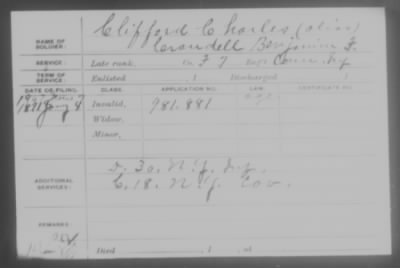 NAME OF SOLDIER: Clifford Charles (alias)
Crandell Benjamin F.
SERVICE: Late rank, Co. F 7 Reg't Conn. Inf
TERM OF SERVICE: Enlisted , 1 Discharged , 1
DATE OF FILING. CLASS. APPLICATION NO. LAW. CERTIFICATE NO.
1891 Jany 8 Invalid, 981.881
Widow,
Minor,
ADDITIONAL SERVICES: D. 30. N.J. Inf.
C. 18. N.Y. Cav.
REMARKS:
Died , 1 , at